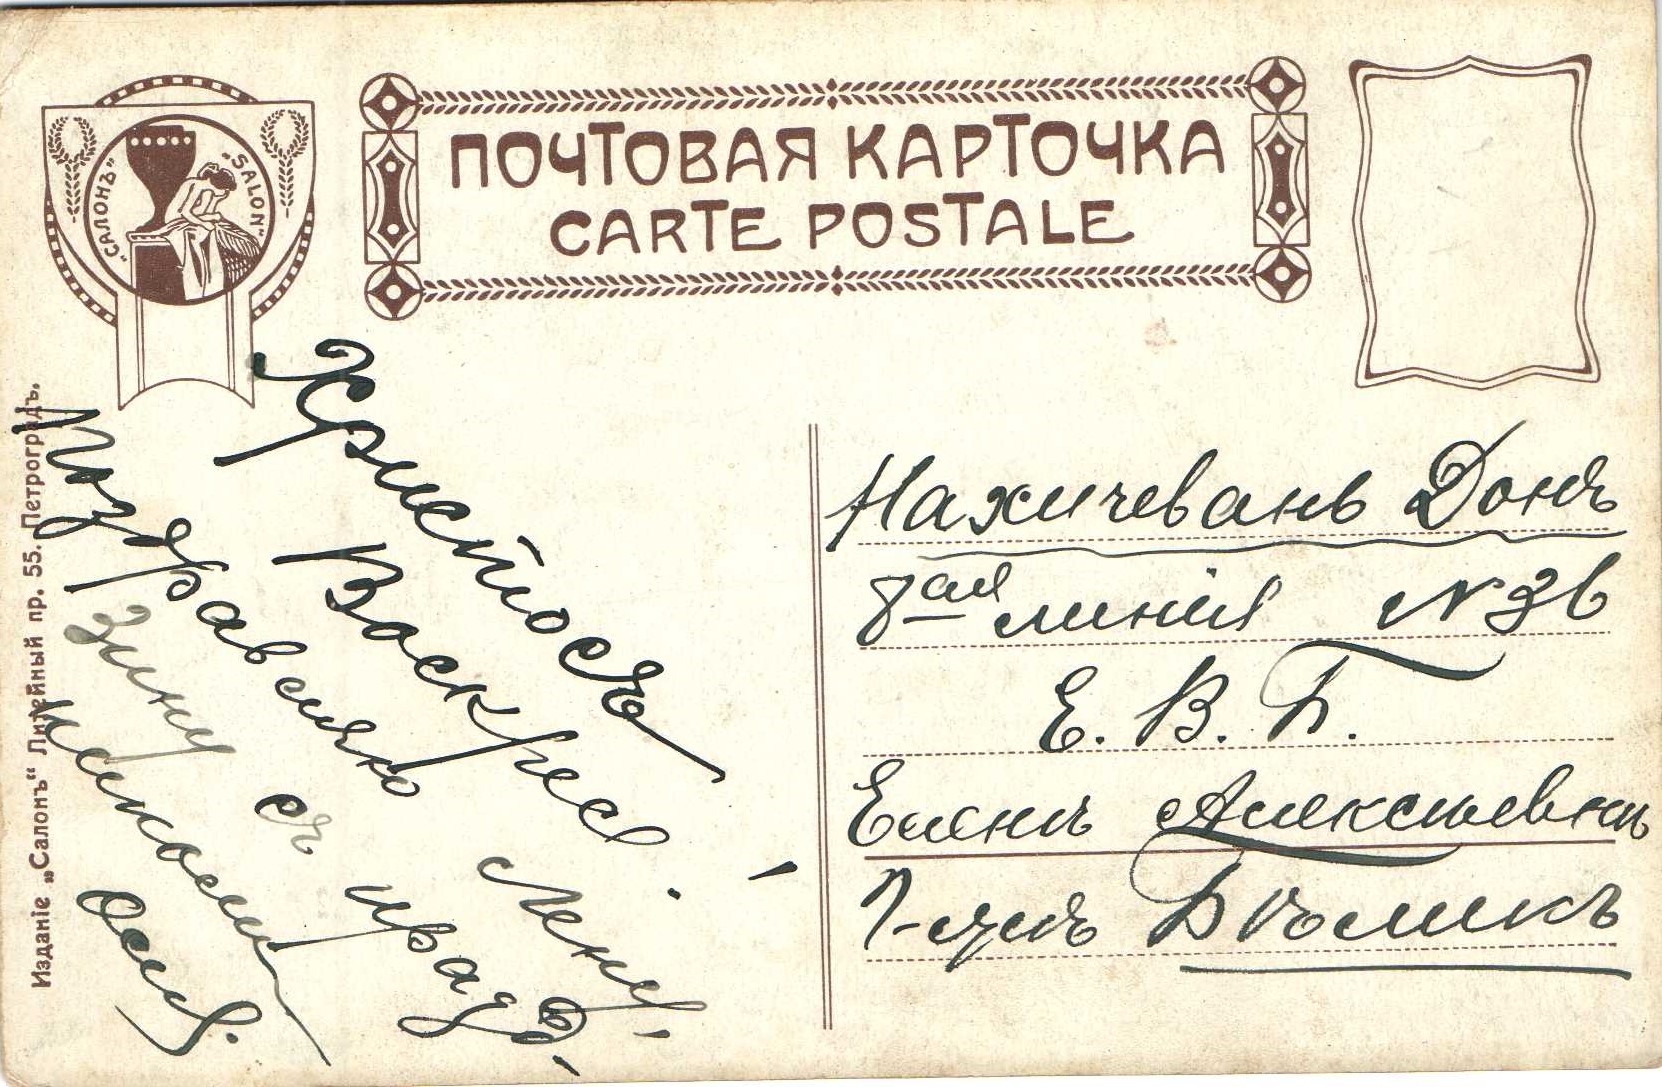 "САЛОНЪ" "SALON"
ПОЧТОВАЯ КАРТОЧКА
CARTE POSTALE
Изданіе „Салонъ“ Литейный пр. 55. Петроградъ.
Христосъ
Воскресе!
Поздравляю Лену,
Зину съ празд-
никомъ
Нахичевань Донъ
8ая линія N 36
Е. В. Б.
Еленъ Алексѣевнѣ
Г-жѣ Бѣликъ